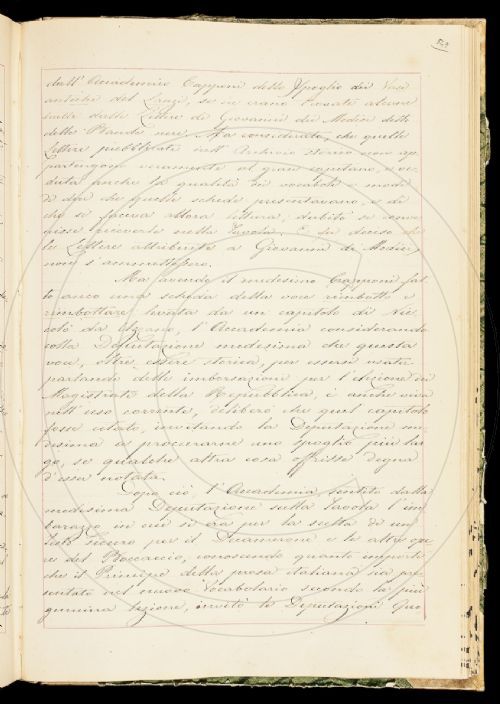 dall'Accademico Capponi dello Spoglio dei Vasi
antichi del Lanzi, se ne erano levate alcune
dalle Lettere di Giovanni dei Medici detto
delle Bande nere. Ma considerato, che quelle
Lettere pubblicate nell'Archivio storico non ap
partengono veramente al gran capitano, e ve
duta anche la qualità di vocaboli e modi
di dire che quelle schede presentavano, e di
che si faceva allora lettura; dubitò se conve
nisse riceverle nella Tavola. E fu deciso che
le Lettere attribuite a Giovanni de' Medici
non s'ammettessero.
Ma avendo il medesimo Capponi fat
to anco una scheda della voce rimbotto e
rimbottare levata da un capitolo di Nic
colò da Uzzano, l'Accademia considerando
colla Deputazione medesima che questa
voce, oltre essere storica, per essersi usata
parlando delle imborsazioni per l'elezione dei
Magistrati della Repubblica, è anche viva
nell'uso corrente, deliberò che quel capitolo
fosse citato, invitando la Deputazione me
desima a procurarne uno spoglio più lar
go, se qualche altra cosa offrisse degna
d'esser notata.
Dopo ciò, l'Accademia, sentito dalla
medesima Deputazione sulla Tavola l'im
barazzo in cui si era per la scelta di un
testo sicuro per il Decamerone e le altre ope
re del Boccaccio, conoscendo quanto importi
che il Principe della prosa italiana sia pre
sentato nel nuovo Vocabolario secondo la più
genuina lezione, invitò le Deputazioni quo